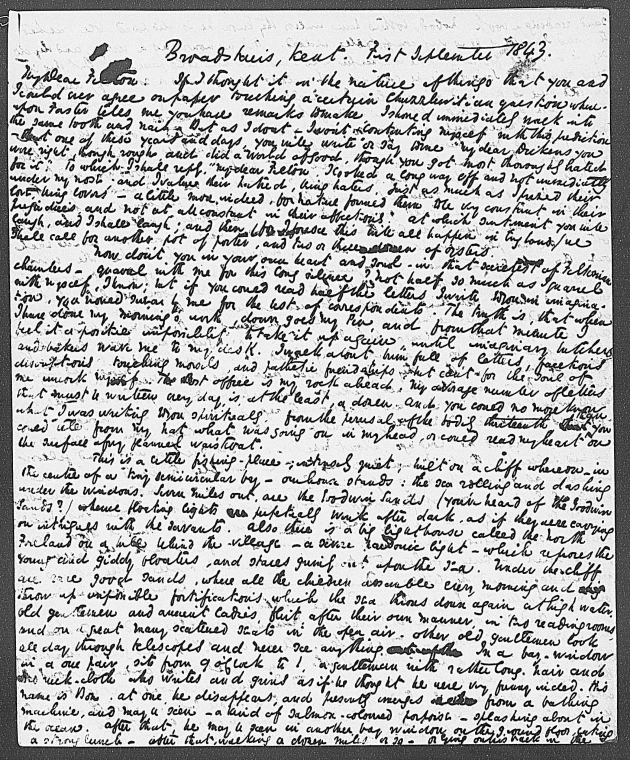 Broadstairs, Kent. First September 1843.
My dear Felton. If I thought it in the nature of things that you and
I could ever agree on paper touching a certain Chuzzlewitian question whereupon
Forster tells me you have remarks to make I should immediately walk into
the same tooth and nail. But as I don't – I won't. Contenting myself with this prediction
– that one of these years and days you will write or say to me "my dear Dickens you
were right, though rough, and did a world of good, though you got most thoroughly hated
for it." To which I shall reply, "my dear Felton I looked a long way off and not immediately
under my nose."
laugh, and I shall laugh; and then
shall call for another pot of porter, and two or three dozen of oysters.
Now don't you in your own heart and soul – in that secretest of Feltonian
chambers – quarrel with me for this long silence? not half so much as I quarrel
with myself, I know; but if you could read half the letters I write to you in imagination,
you would swear by me for the best of correspondents. The truth is, that when
I have done my morning's work, down goes my Pen, and from that minute I
feel it a positive impossibility to take it up again, until imaginary butchers
and bakers wave me to my desk. I walk about, brim full of letters, facetious
descriptions, touching morsels, and pathetic friendships – but can't for the soul of
me uncork myself. The Post office is my rock ahead. my average number of letters
that must be written every day, is, at the least, a dozen. and you could no more know
what I was writing to you spiritually from the perusal of the bodily thirteenth than you
could tell from my hat what was going on in my head, or could read my heart on
the surface of my flannel waistcoat.
This is a little fishing-place; intensely quiet; built on a cliff whereon – in
the centre of a tiny semicircular bay – our house stands: the sea rolling and dashing
under the windows. Seven miles out, are the Goodwin Sands (you've heard of the Goodwin
Sands?) whence floating lights perpetually wink after dark, as if they were carrying
on intrigues with the servants. Also there is a big lighthouse called the North
Foreland on a hill behind the village – a severe parsonic light – which reproves the
young and giddy floaters, and stares grimly out upon the Sea. Under the cliff
are rare good sands, where all the children assemble every morning and
throw up impossible fortifications which the sea throws down again at high water.
old gentlemen and ancient ladies flirt after their own manner, in two reading rooms
and on a great many scattered seats in the open air. Other old gentlemen look
all day through telescopes and never see anything. In a bay-window
in a one pair, sits from 9 o'Clock to 1, a gentleman with rather long hair and
no neck-cloth who writes and grins as if he thought he were very funny indeed. His
name is Boz. at one he disappears, and presently emerges from a bathing
machine, and may be seen – a kind of salmon-coloured porpoise – splashing about in
the ocean. after that he may be seen in another bay window on the ground floor, eating
a strong lunch – after that, walking a dozen miles or so – or lying on his back in the